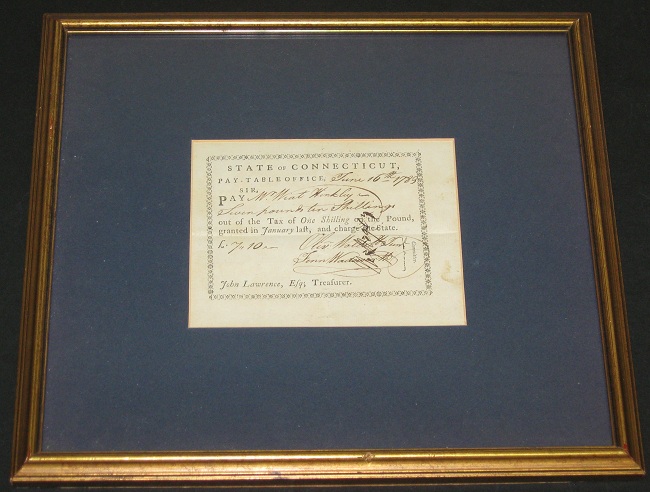 STATE OF CONNECTICUT,
PAY-TABLE OFFICE, June 16th 1783
SIR,
PAY Mr
Seven pounds ten Shillings
out of the Tax of One Shilling on the Pound,
granted in January last, and charge the State.
£. 7,, 10
Oliv Wolcott
John Lawrence, Esq; Treasurer.